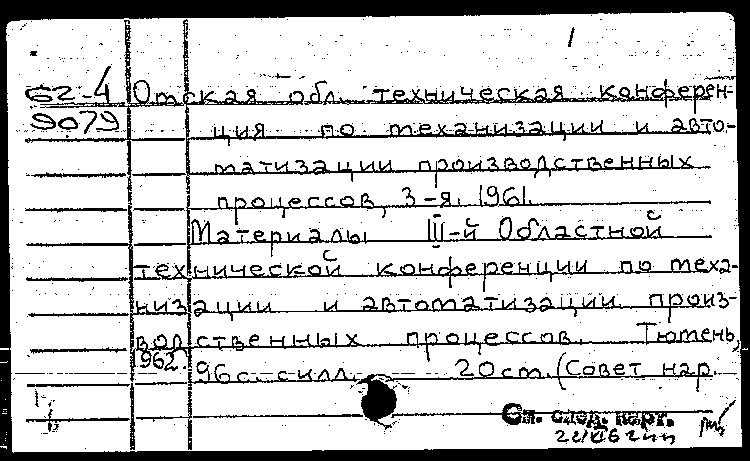 1
62-4 Отская обл. техническая конферен-
9079 ция по механизации и авто-
матизации производственных
процессов, 3-я. 1961.
Материалы III-й Областной
технической конференции по меха-
низации и автоматизации произ-
водственных процессов. Тютень,
962. 96с. с илл. 20 cm. (Совет нар.
См. след. карт.